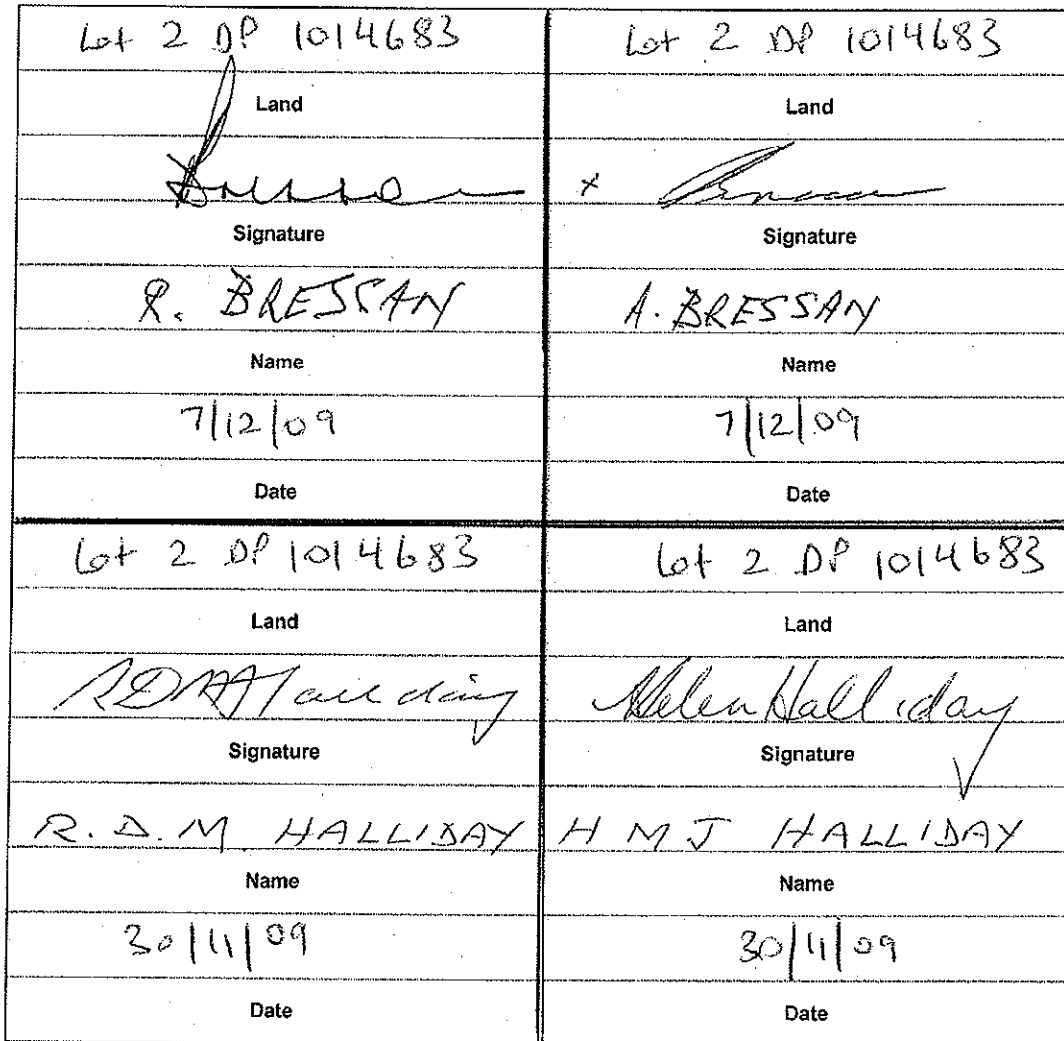 Lot 2 DP 1014683
Land
Signature
R. BRESSAN
Name
7/12/09
Date
Lot 2 DP 1014683
Land
x
Signature
A. BRESSAN
Name
7/12/09
Date
Lot 2 DP 1014683
Land
Signature
R. D. M. HALLIDAY
Name
30/11/09
Date
Lot 2 DP 1014683
Land
Helen Halliday
Signature
H M J HALLIDAY
Name
30/11/09
Date